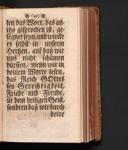 den das Wort, das an-
itzo gesprochen ist, ge-
segnet seyn, und würcke
es selbst in unserm
Hertzen, auf daß wir
uns nicht schämen
dürffen, wenn wir in
deinem Worte lesen,
das Reich GOttes
sey Gerechtigkeit,
Friede und Freude,
in dem heiligen Geist,
sondern daß wir durch
deine